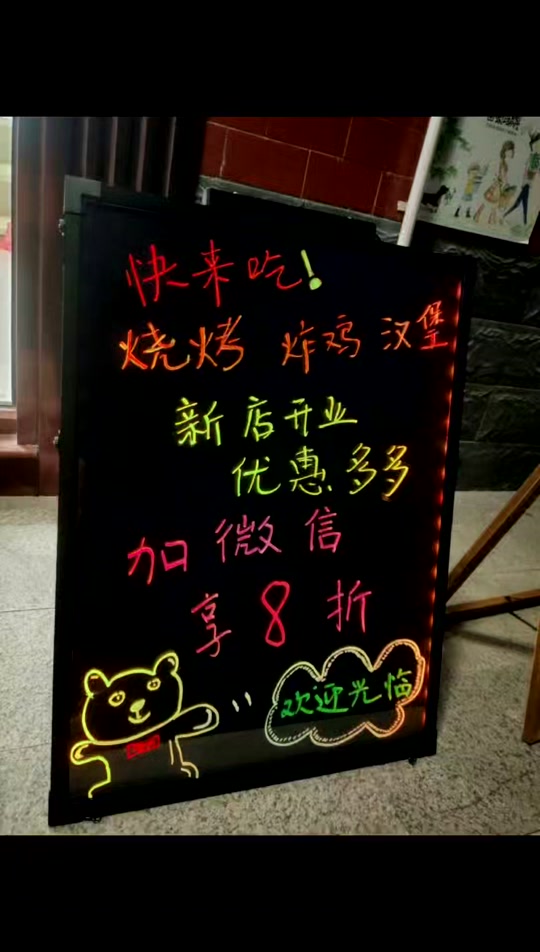 快来吃!
烧烤 炸鸡 汉堡
新店开业
优惠多多
加微信
享8折
欢迎光临